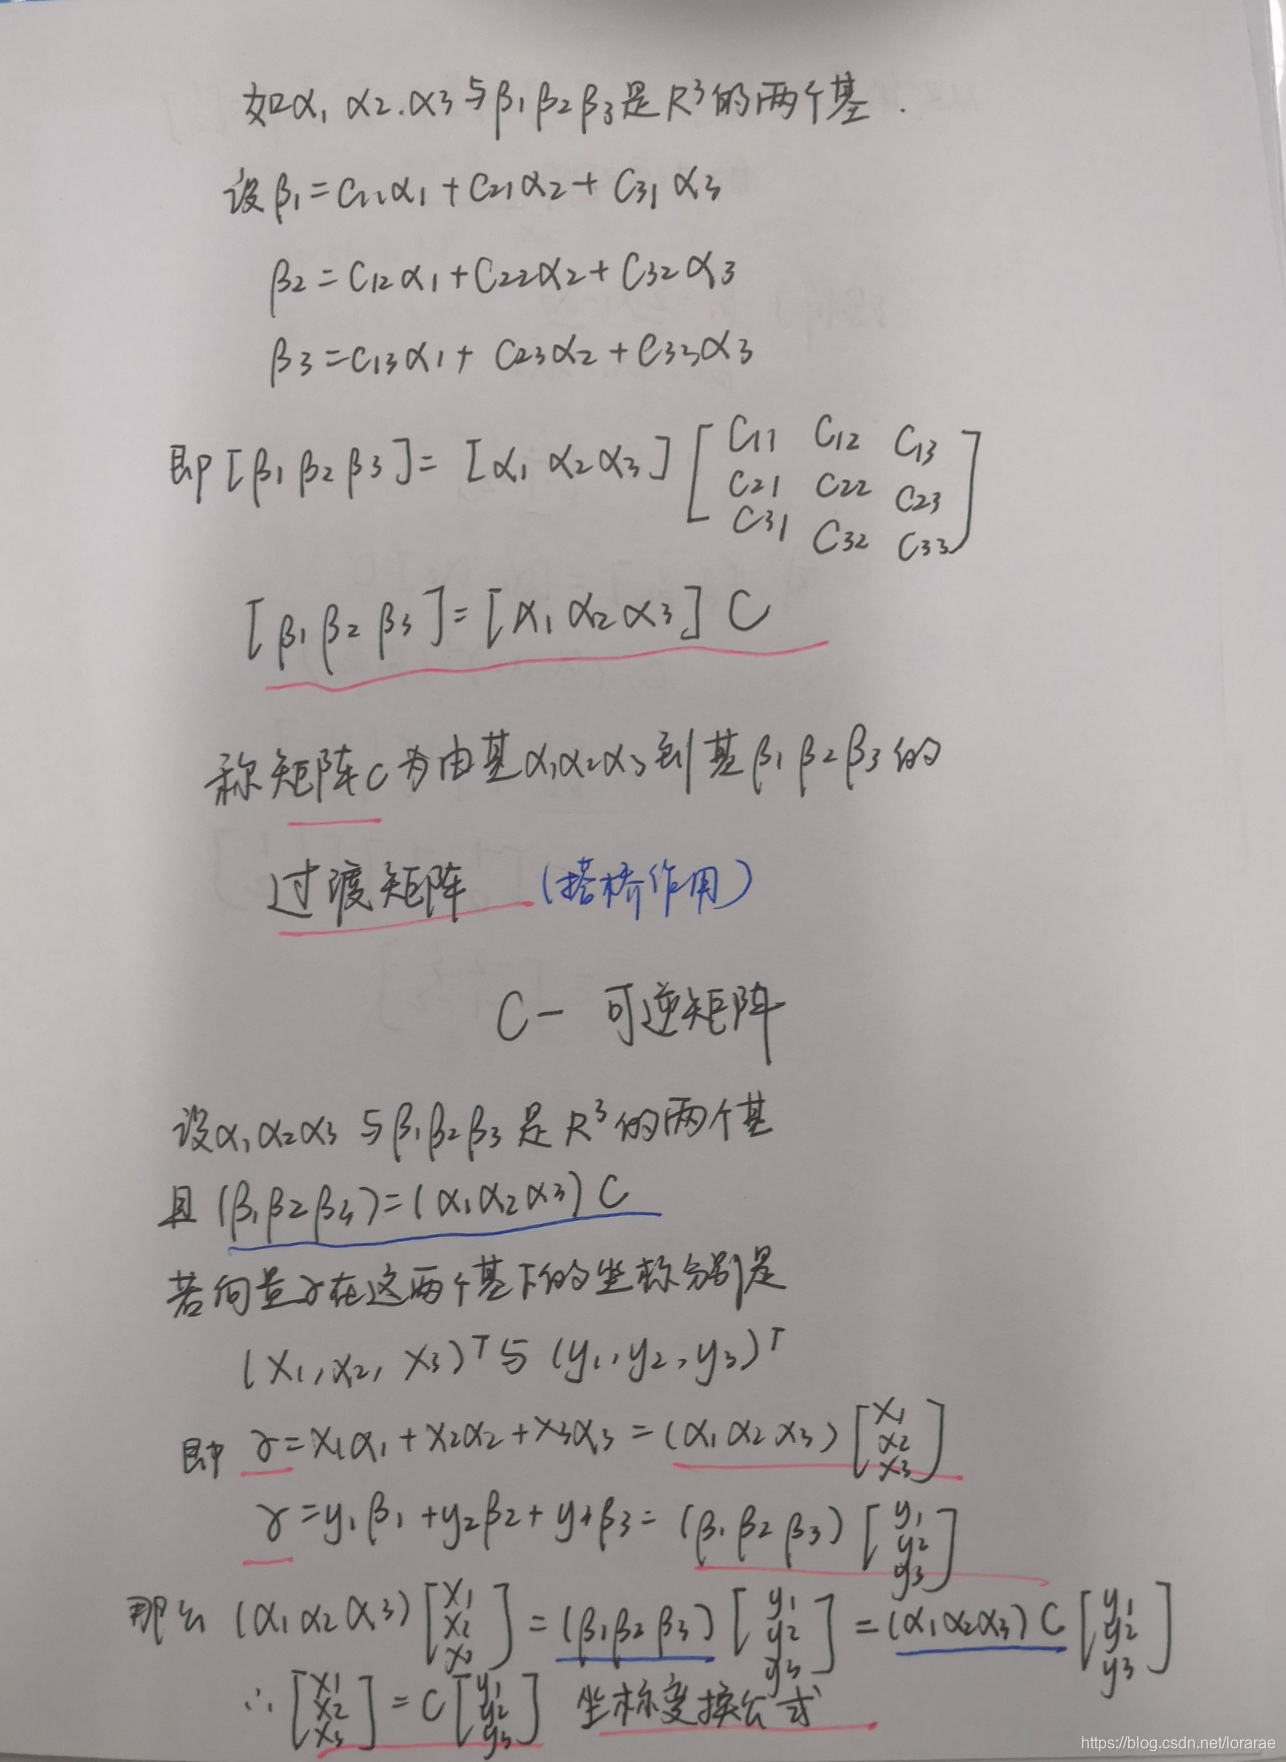 如α1 α2.α3与β1β2β3是R³的两个基.
设β1=C11α1+C21α2+C31α3
β2=C12α1+C22α2+C32α3
β3=C13α1+C23α2+C33α3
即[β1 β2 β3]=[α1 α2 α3][C11 C12 C13
C21 C22 C23
C31 C32 C33]
[β1 β2 β3]=[α1 α2 α3]C
称矩阵C为由基α1α2α3到基β1 β2 β3的
过渡矩阵 (搭桥作用)
C- 可逆矩阵
设α1α2α3与β1β2β3是R³的两个基
且(β1β2β3)=(α1α2α3)C
若向量γ在这两个基下的坐标分别是
(x1,x2,x3)ᵀ与(y1,y2,y3)ᵀ
即γ=x1α1+x2α2+x3α3=(α1 α2 α3)[x1
x2
x3]
γ=y1β1+y2β2+y+β3=(β1 β2 β3)[y1
y2
y3]
那么(α1 α2 α3)[x1 x2 x3]=(β1β2β3)[y1 y2 y3]=(α1α2α3)C[y1 y2 y3]
∴[x1 x2 x3]=C[y1 y2 y3] 坐标变换公式
https://blog.csdn.net/lorarae